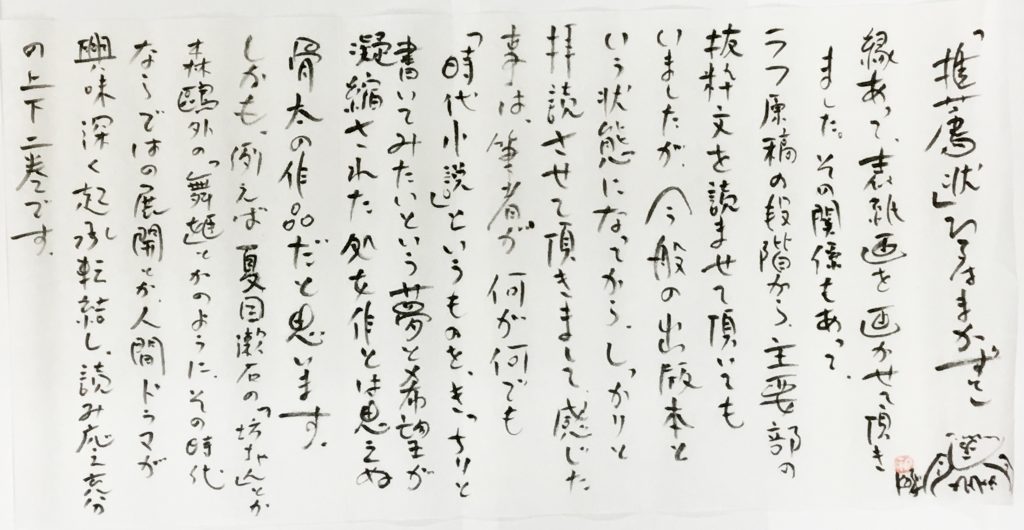 「推薦状」ひろはまかずと
縁あって、表紙画を画かせて頂き
ました。その関係もあって、
ラフ原稿の段階から、主要部の
抜粋文を読ませて頂いても
いましたが、今般の出版本と
いう状態になってから、しっかりと
拝読させて頂きまして、感じた
事は、筆者が何が何でも
「時代小説」というものを、きっちりと
書いてみたいという夢と希望が
凝縮された処女作とは思えぬ
骨太の作品だと思います。
しかも、例えば夏目漱石の「坊ちゃん」とか
森鷗外の「舞姫」とかのように、その時代
ならではの展開とか、人間ドラマが
興味深く起承転結し、読み応え充分
の上下二巻です。